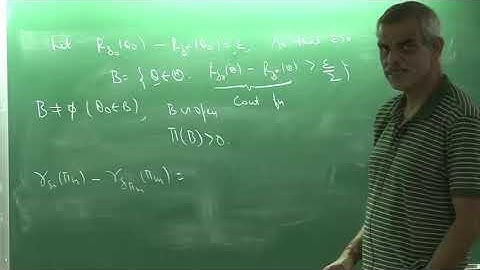 Let R_{δ_0}(θ_0) − R_{δ*}(θ_0) = ε. As thus ε>0
B = { θ ∈ Θ: R_{δ_0}(θ) − R_{δ*}(θ) > ε/2 }
Cont fn
B ≠ φ (θ_0 ∈ B), B is open
Π(B) > 0.
γ_{δ_0}(Π_n) − γ_{δ_{Π_n}}(Π_n) =